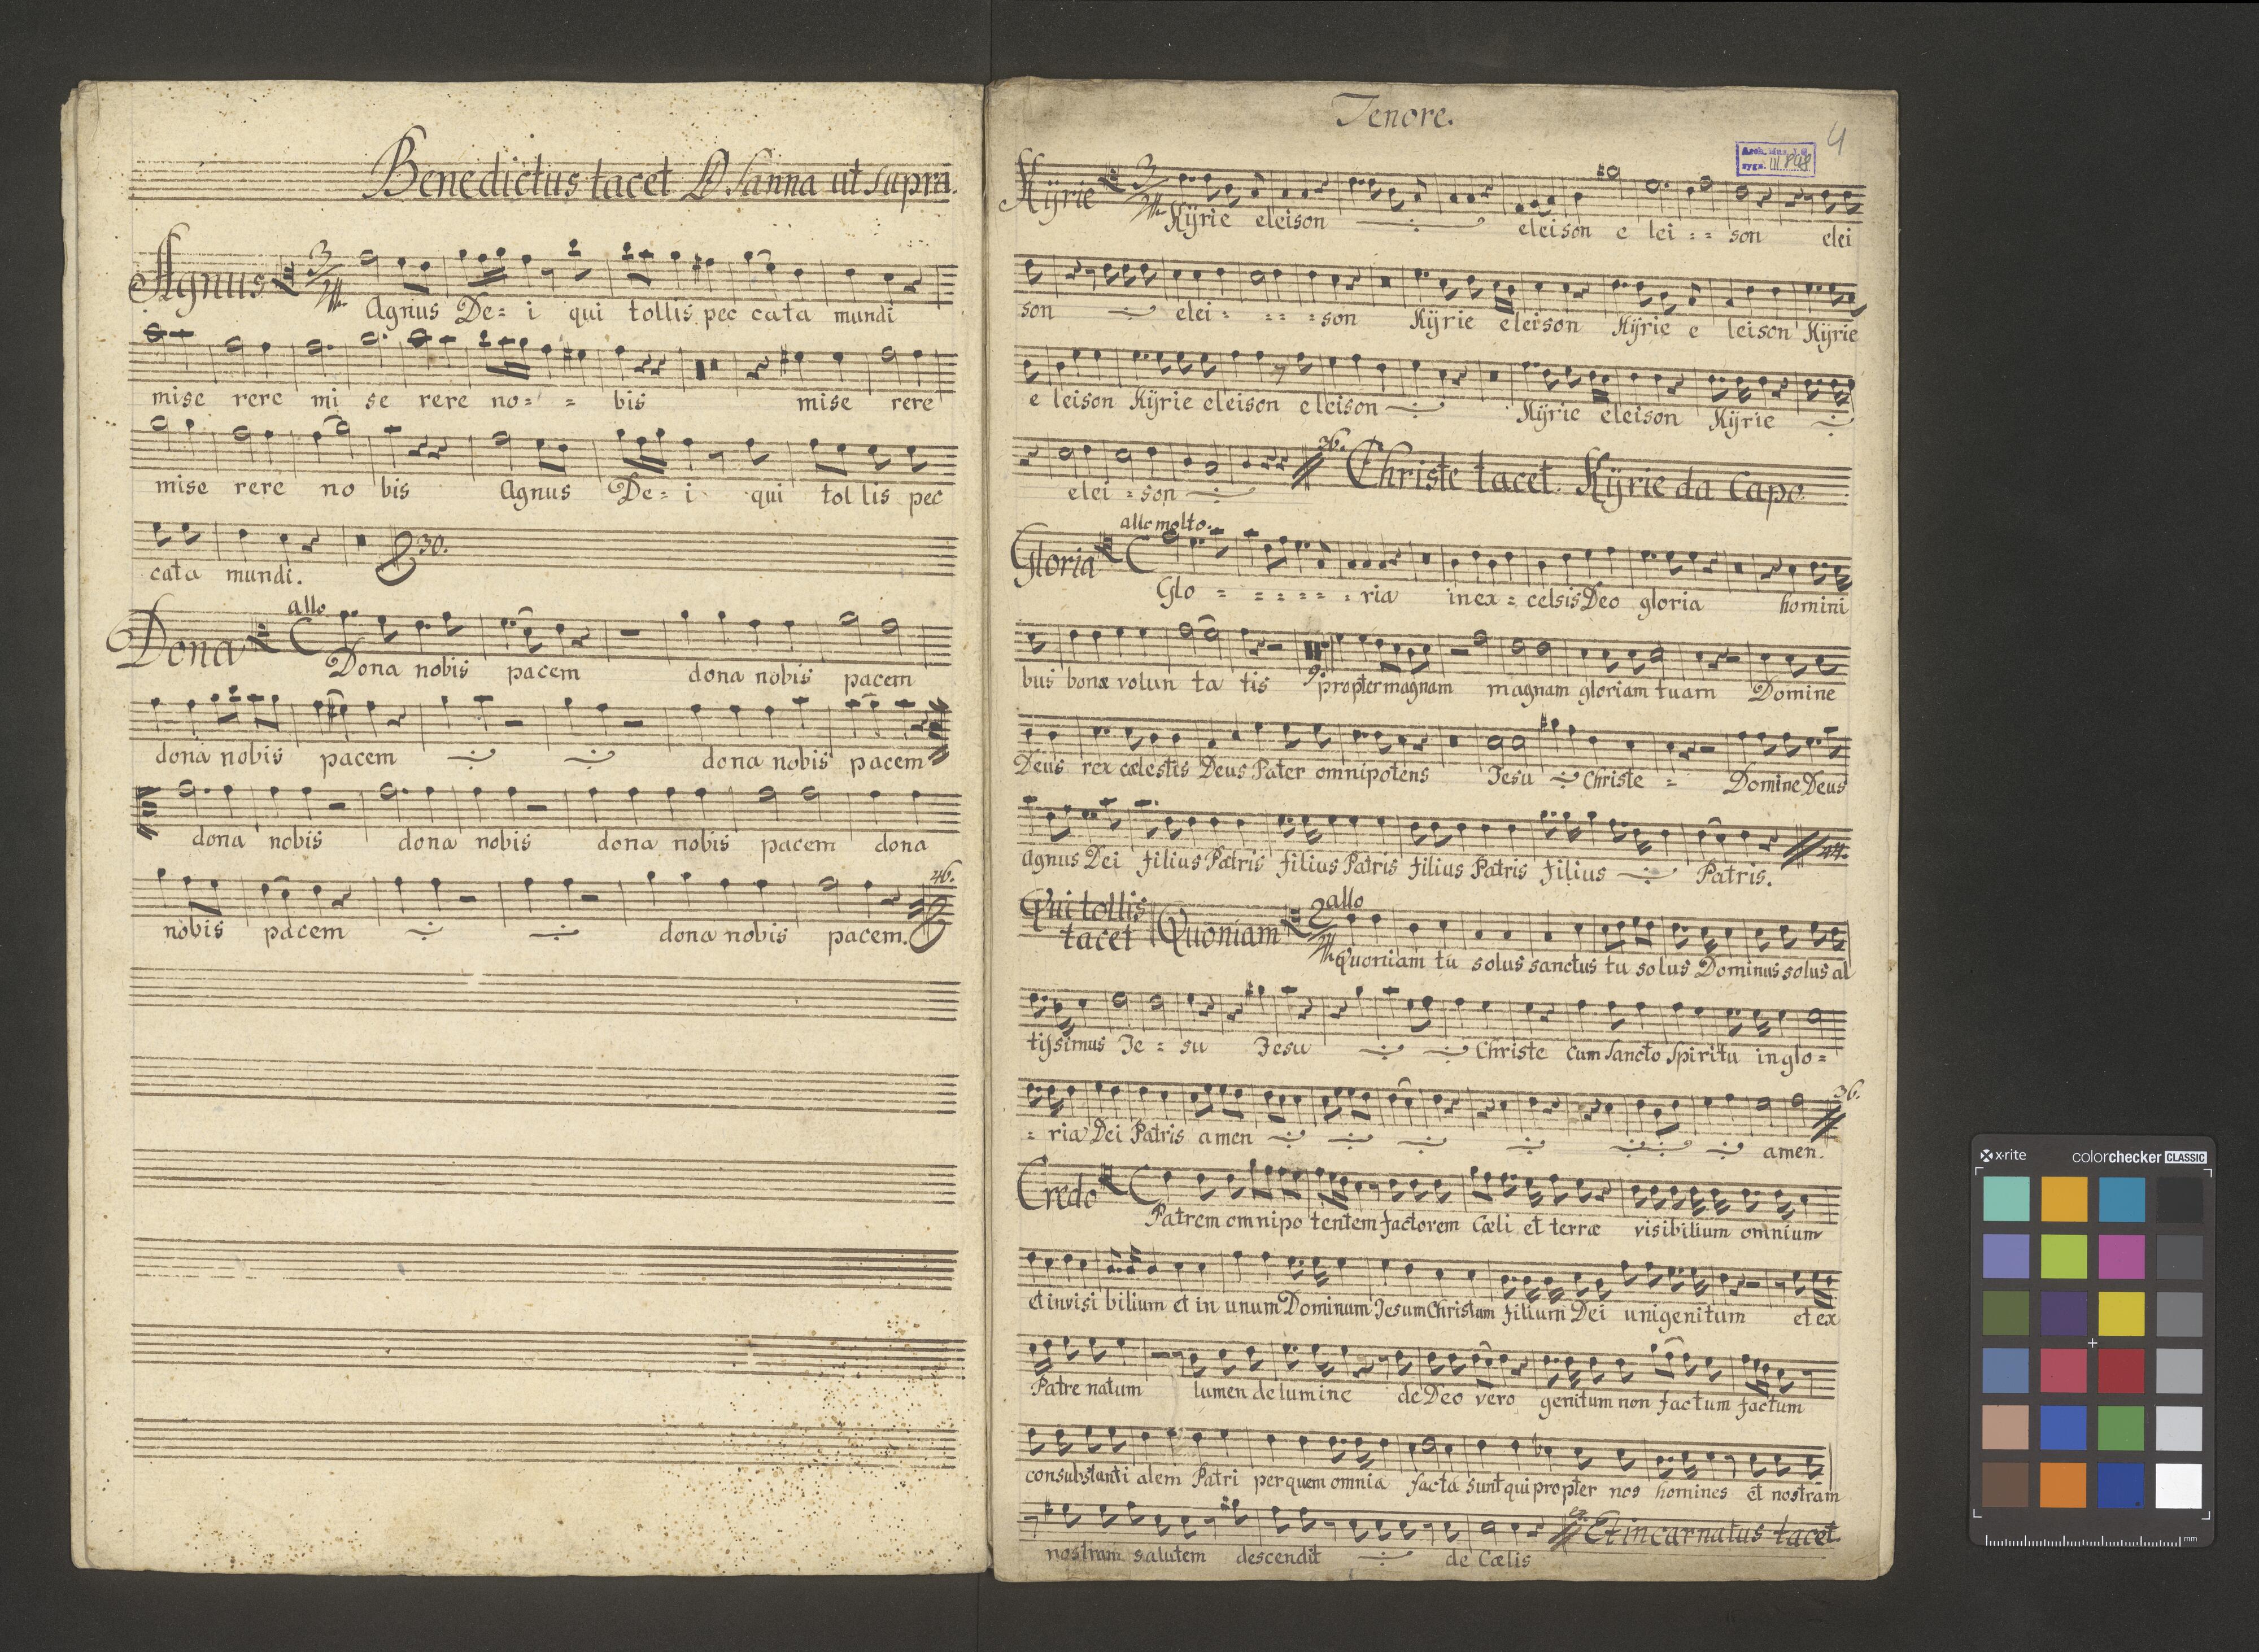 Benedictus tacet Osanna ut supra.
Agnus 3/4
Agnus De = i qui tollis pec cata mundi
mise rere mi se rere no = = bis mise rere
mise rere no bis Agnus De = i qui tol lis pec
30.
cata mundi.
allo
Dona
Dona nobis pacem dona nobis pacem
dona nobis pacem dona nobis pacem
dona nobis dona nobis dona nobis pacem dona
46.
nobis pacem dona nobis pacem.
Tenore.
4
Kÿrie 3/4
Kÿrie eleison eleison e lei = = son elei
son elei = = = = son Kÿrie eleison Kÿrie e leison Kÿrie
e leison Kÿrie eleison eleison Kÿrie eleison Kÿrie
36. Christe tacet. Kÿrie da Capo.
elei = son
allo molto.
Gloria
Glo = = = = = = ria in ex = celsis Deo gloria homini
9.
bus bonæ volun ta tis propter magnam magnam gloriam tuam Domine
Deus rex cælestis Deus Pater omnipotens Jesu Christe = Domine Deus
44.
agnus Dei filius Patris filius Patris filius Patris filius Patris.
Qui tollis tacet Quoniam 2/4 allo
Quoniam tu solus sanctus tu solus Dominus solus al
tissimus Je = su Jesu Christe cum sancto Spiritu in glo =
36.
= ria Dei Patris amen amen.
Credo
Patrem omnipo tentem factorem Cæli et terræ visibilium omnium
et invisi bilium et in unum Dominum Jesum Christum filium Dei unigenitum et ex
Patre natum lumen de lumine de Deo vero genitum non factum factum
consubstanti alem Patri per quem omnia facta sunt qui propter nos homines et nostram
Et incarnatus tacet
nostram salutem descendit de Cælis
x·rite colorchecker CLASSIC
mm